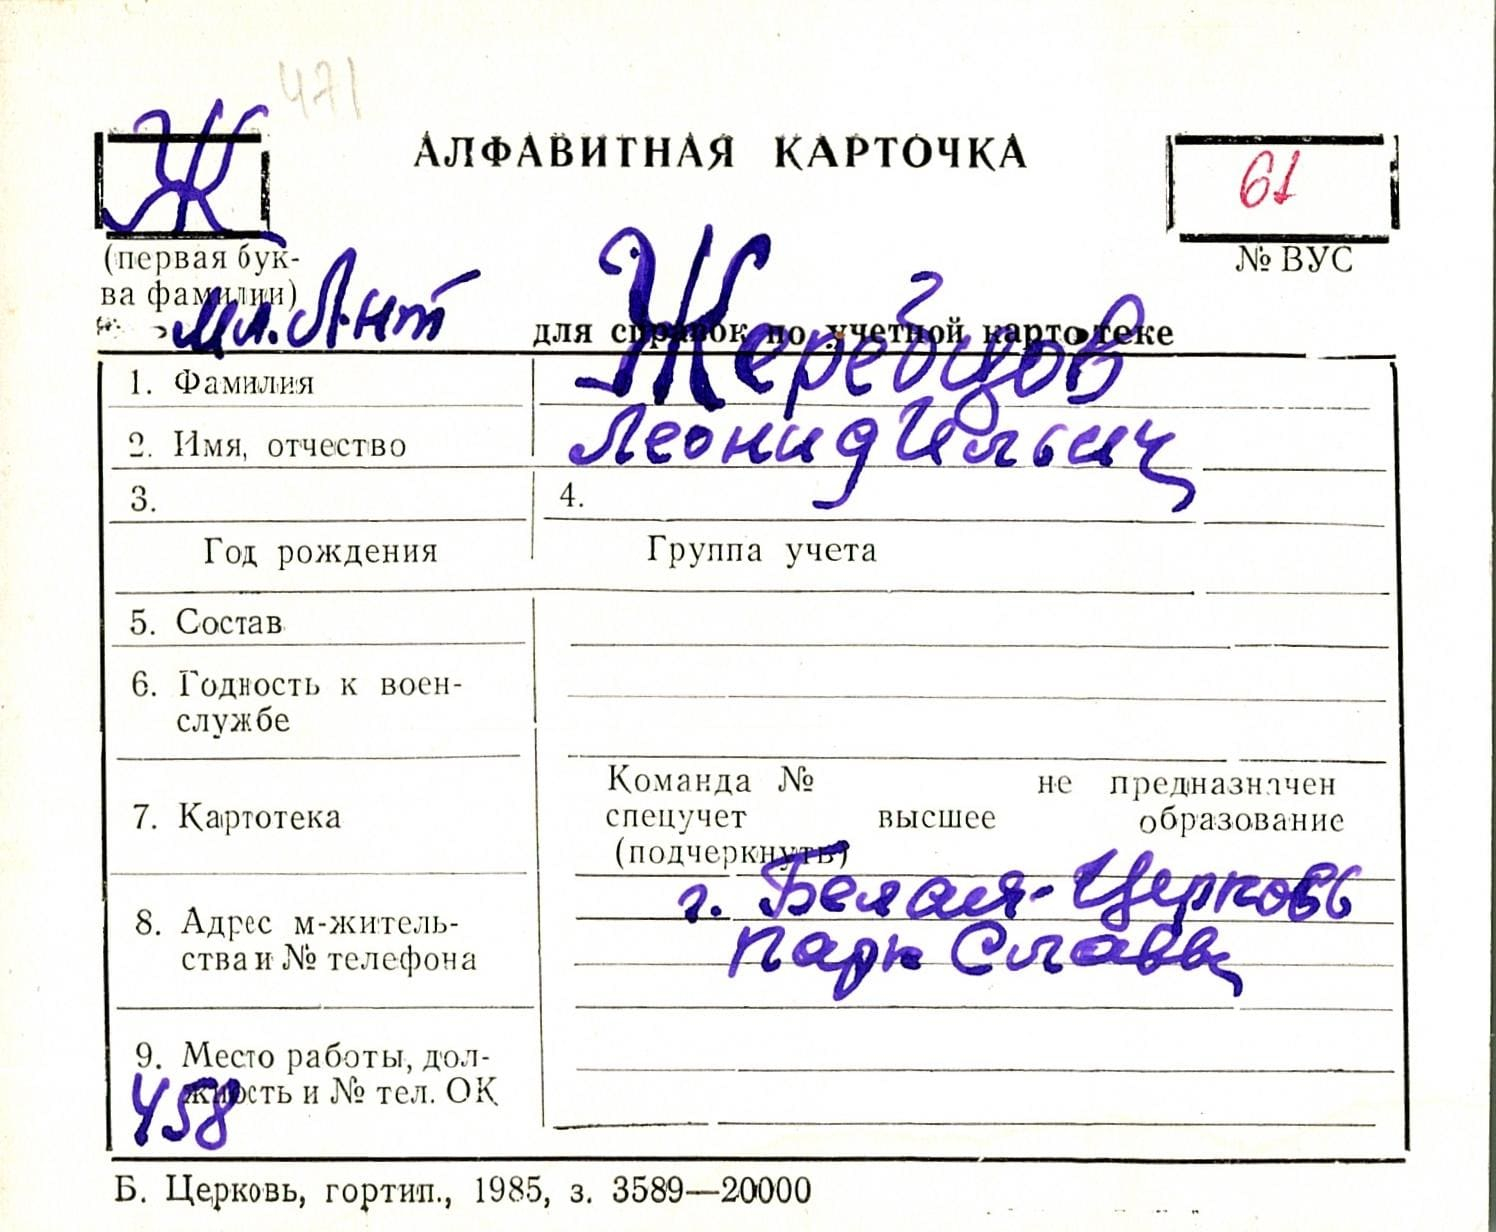 471
Ж
АЛФАВИТНАЯ КАРТОЧКА
61
(первая бук-
ва фамилии)
№ ВУС
мл. л-нт
для справок по учетной картотеке
1. Фамилия
Жеребцов
2. Имя, отчество
Леонид Ильич
3.
4.
Год рождения
Группа учета
5. Состав
6. Годность к воен-
службе
7. Картотека
Команда № не предназначен
спецучет высшее образование
(подчеркнуть)
8. Адрес м-житель-
ства и № телефона
г. Белая-Церковь
парк Славы
9. Место работы, дол-
жность и № тел. ОК
458
Б. Церковь, гортип., 1985, з. 3589—20000